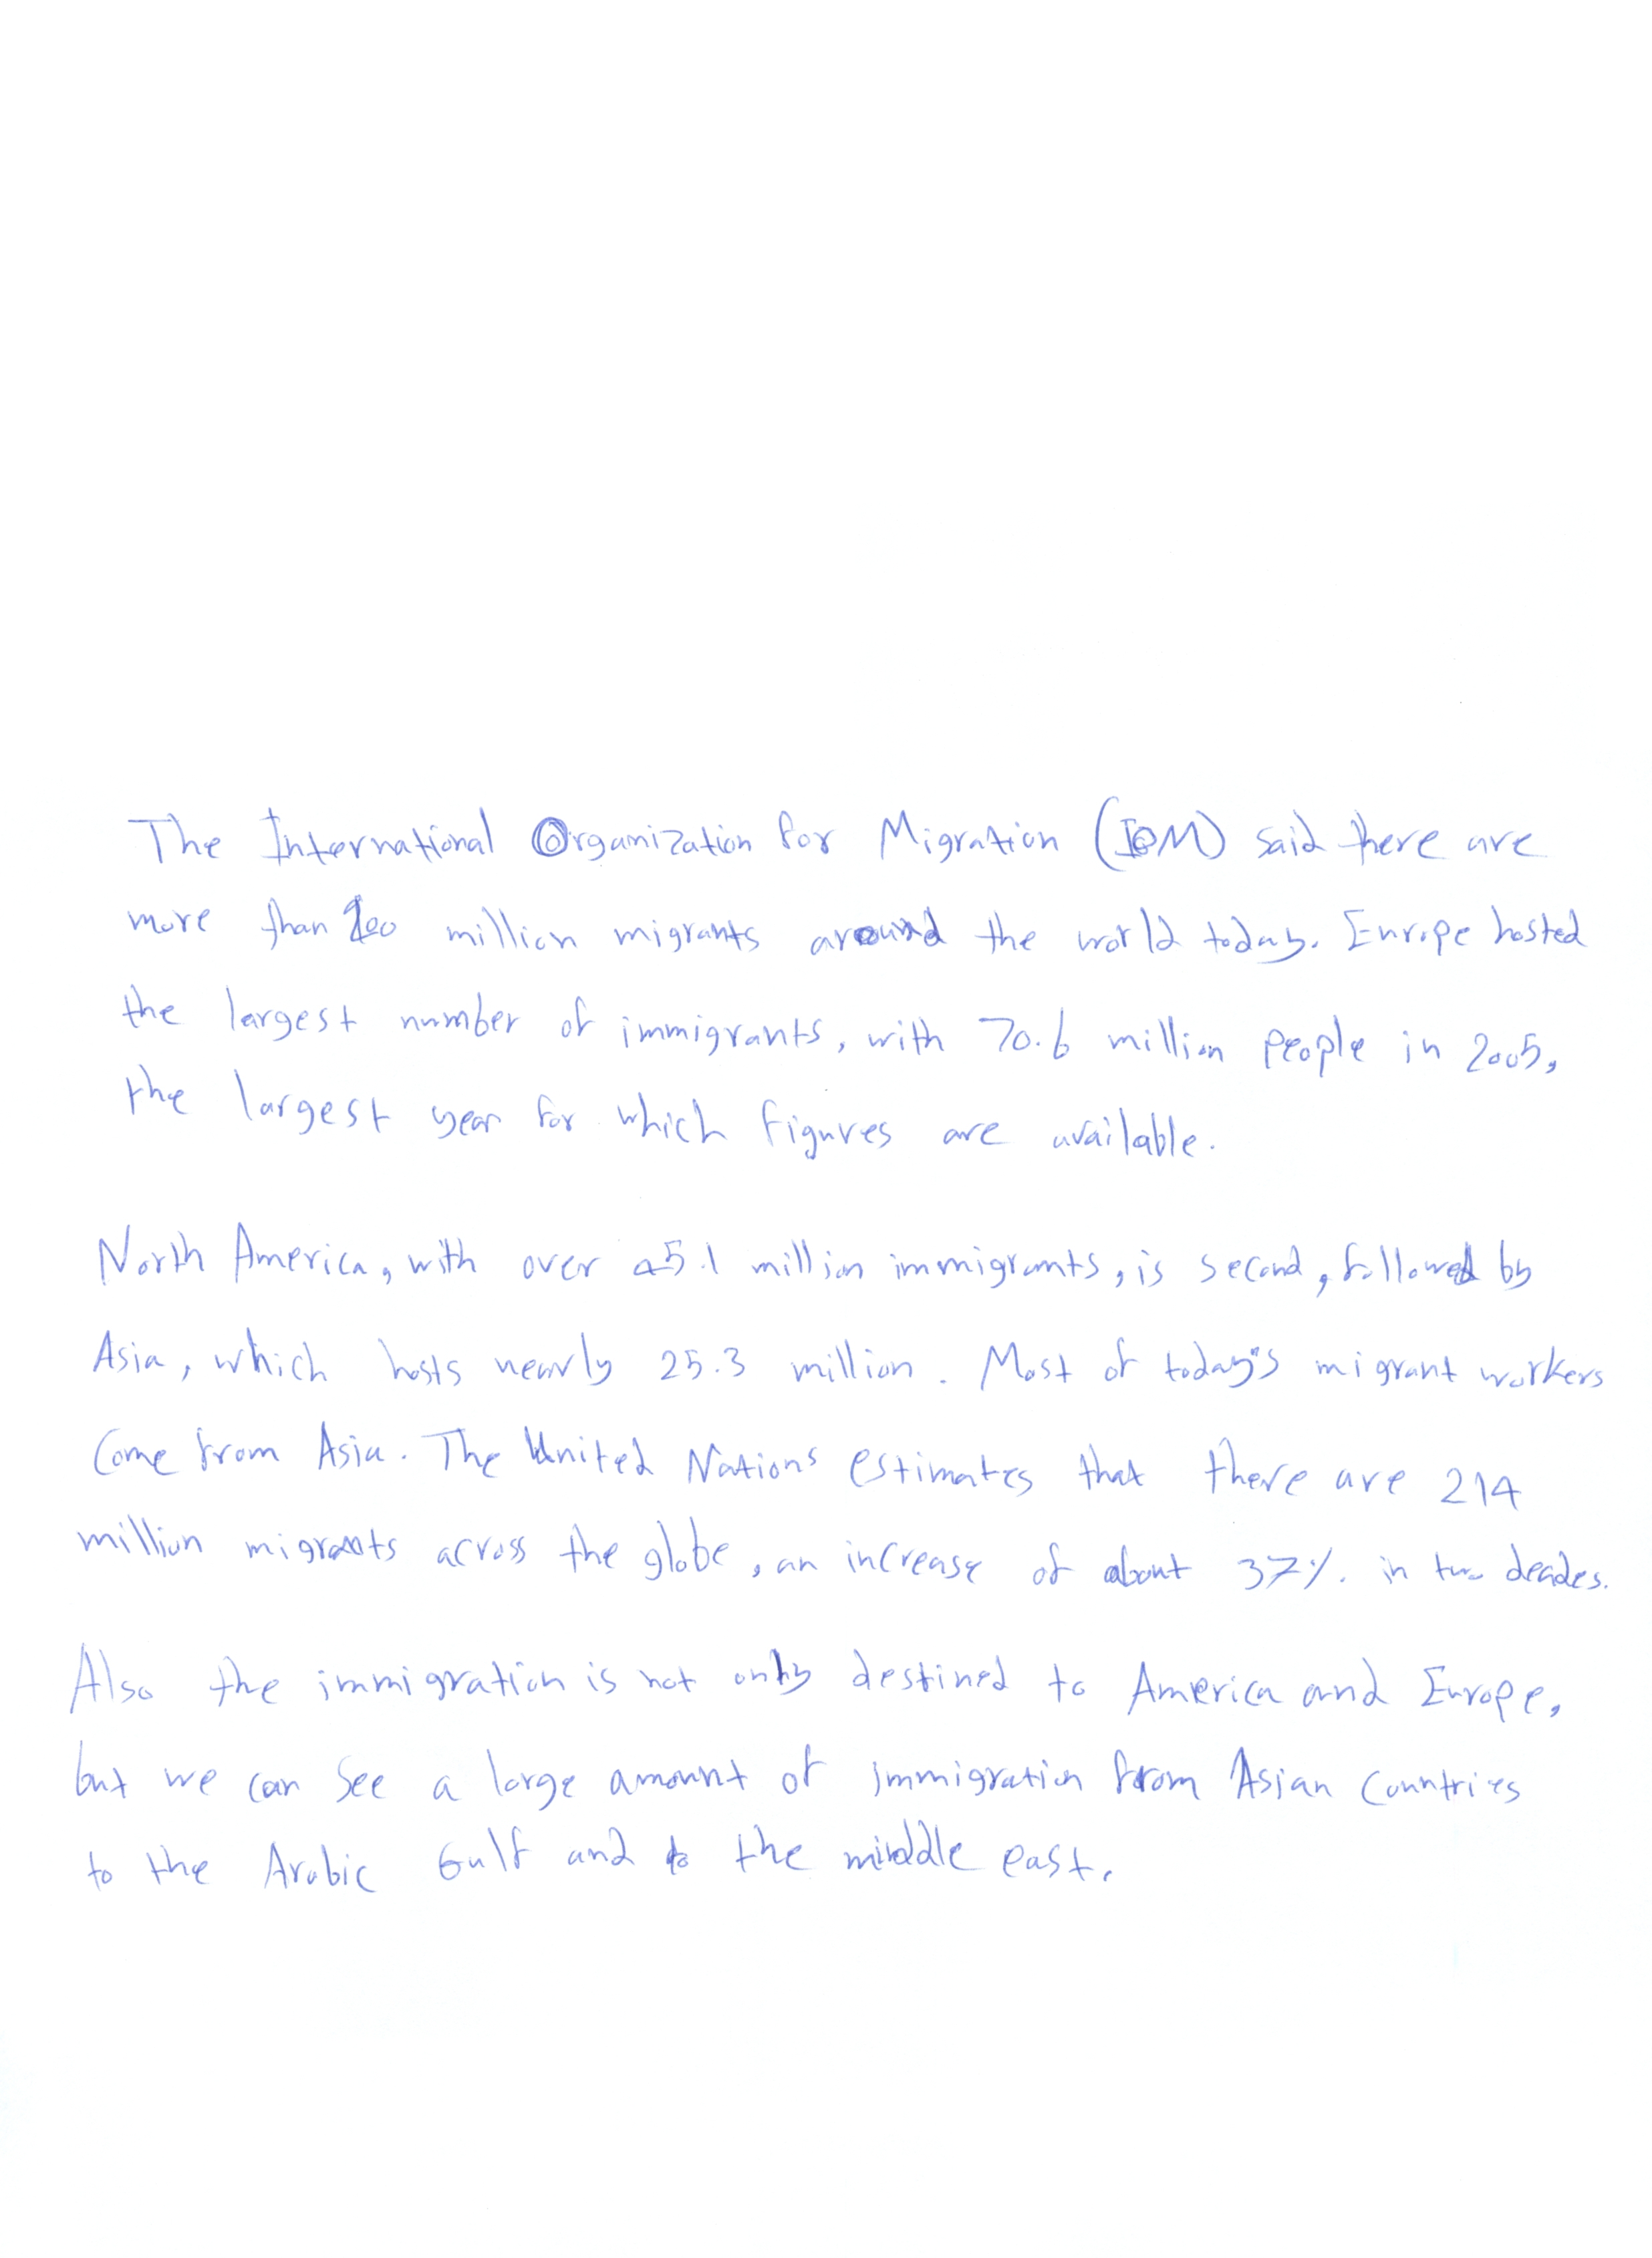 The International Organization for Migration (IOM) said there are
more than 200 million migrants around the world today. Europe hosted
the largest number of immigrants, with 70.6 million people in 2005,
the largest year for which figures are available.
North America, with over 45.1 million immigrants, is second, followed by
Asia, which hosts nearly 25.3 million. Most of today's migrant workers
come from Asia. The United Nations estimates that there are 214
million migrants across the globe, an increase of about 37%. in two decades.
Also the immigration is not only destined to America and Europe,
but we can see a large amount of immigration from Asian countries
to the Arabic Gulf and to the middle east.